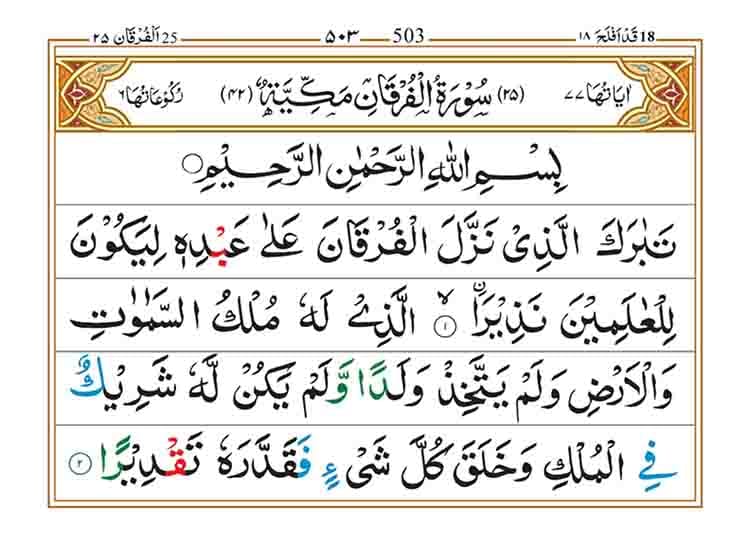 18 قد افلح ۱۸ 503 ۵۰۳ 25 الفرقان ۲۵
اٰیاتها ۷۷ (۲۵) سُوْرَةُ الْفُرْقَانِ مَكِّیَّةٌ (۴۲) رکوعاتها ۶
بِسْمِ اللّٰهِ الرَّحْمٰنِ الرَّحِیْمِ۝
تَبٰرَكَ الَّذِیْ نَزَّلَ الْفُرْقَانَ عَلٰی عَبْدِهٖ لِیَكُوْنَ
لِلْعٰلَمِیْنَ نَذِیْرَاۙ۝۱ ۨالَّذِیْ لَهٗ مُلْكُ السَّمٰوٰتِ
وَالْاَرْضِ وَلَمْ یَتَّخِذْ وَلَدًا وَّلَمْ یَكُنْ لَّهٗ شَرِیْكٌ
فِی الْمُلْكِ وَخَلَقَ كُلَّ شَیْءٍ فَقَدَّرَهٗ تَقْدِیْرًا۝۲